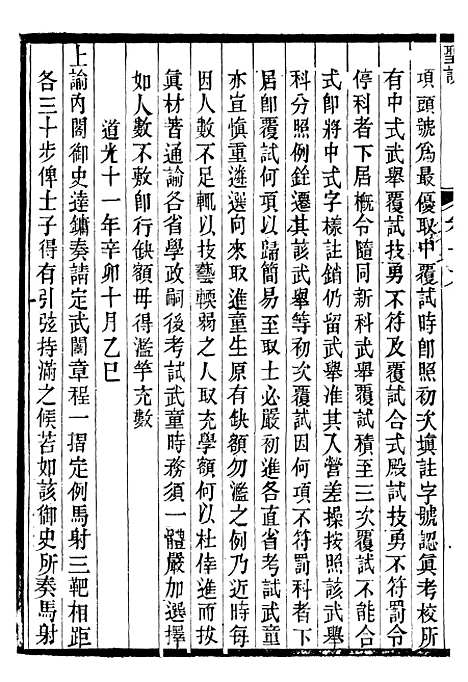 聖訓
項頭號爲最優取中覆試時卽照初次塡註字號認眞考校所
有中式武舉覆試技勇不符及覆試合式殿試技勇不符罰令
停科者下屆概令隨同新科武舉覆試積至三次覆試不能合
式卽將中式字樣註銷仍留武舉准其入營差操按照該武舉
科分照例銓選其該武舉等初次覆試何項不符罰科者下
屆卽覆試何項以歸簡易至取士必嚴初進各直省考試武童
亦宜愼重遴選向來取進童生原有缺額勿濫之例乃近時或
因人數不足輒以技藝輭弱之人取充學額何以杜倖進而拔
眞材著通諭各省學政嗣後考試武童時務須一體嚴加選擇
如人數不敷卽行缺額毋得濫竽充數
道光十一年辛卯十月乙巳
上諭內閣御史達鏞奏請定武闈章程一摺定例馬射三靶相距
各三十步俾士子得有引弦持滿之候若如該御史所奏馬射